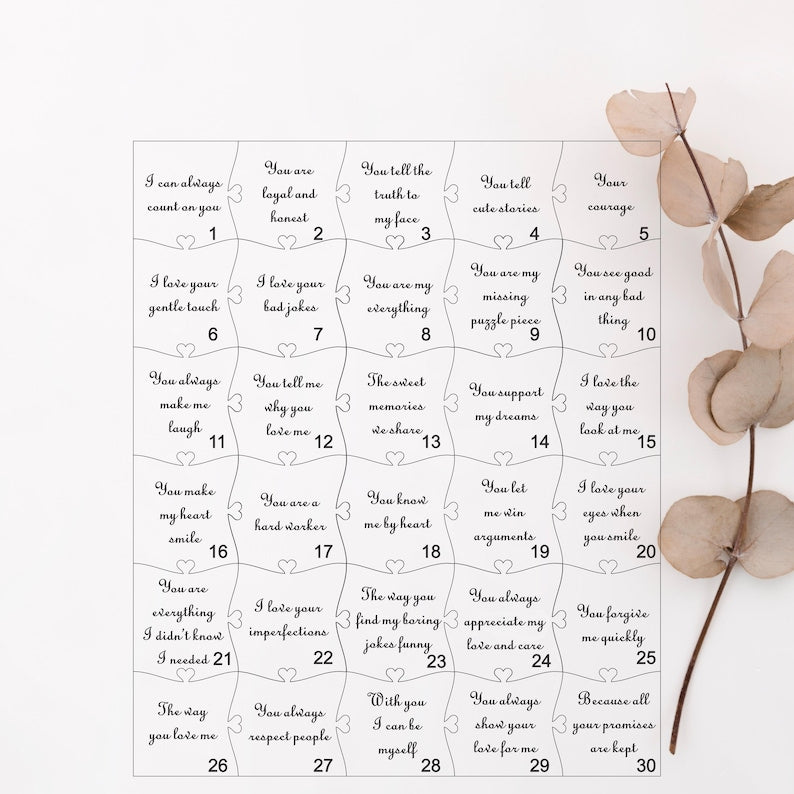 I can always
count on you
1
You are
loyal and
honest
2
You tell the
truth to
my face
3
You tell
cute stories
4
Your
courage
5
I love your
gentle touch
6
I love your
bad jokes
7
You are my
everything
8
You are my
missing
puzzle piece
9
You see good
in any bad
thing
10
You always
make me
laugh
11
You tell me
why you
love me
12
The sweet
memories
we share
13
You support
my dreams
14
I love the
way you
look at me
15
You make
my heart
smile
16
You are a
hard worker
17
You know
me by heart
18
You let
me win
arguments
19
I love your
eyes when
you smile
20
You are
everything
I didn't know
I needed 21
I love your
imperfections
22
The way you
find my boring
jokes funny
23
You always
appreciate my
love and care
24
You forgive
me quickly
25
The way
you love me
26
You always
respect people
27
With you
I can be
myself
28
You always
show your
love for me
29
Because all
your promises
are kept
30